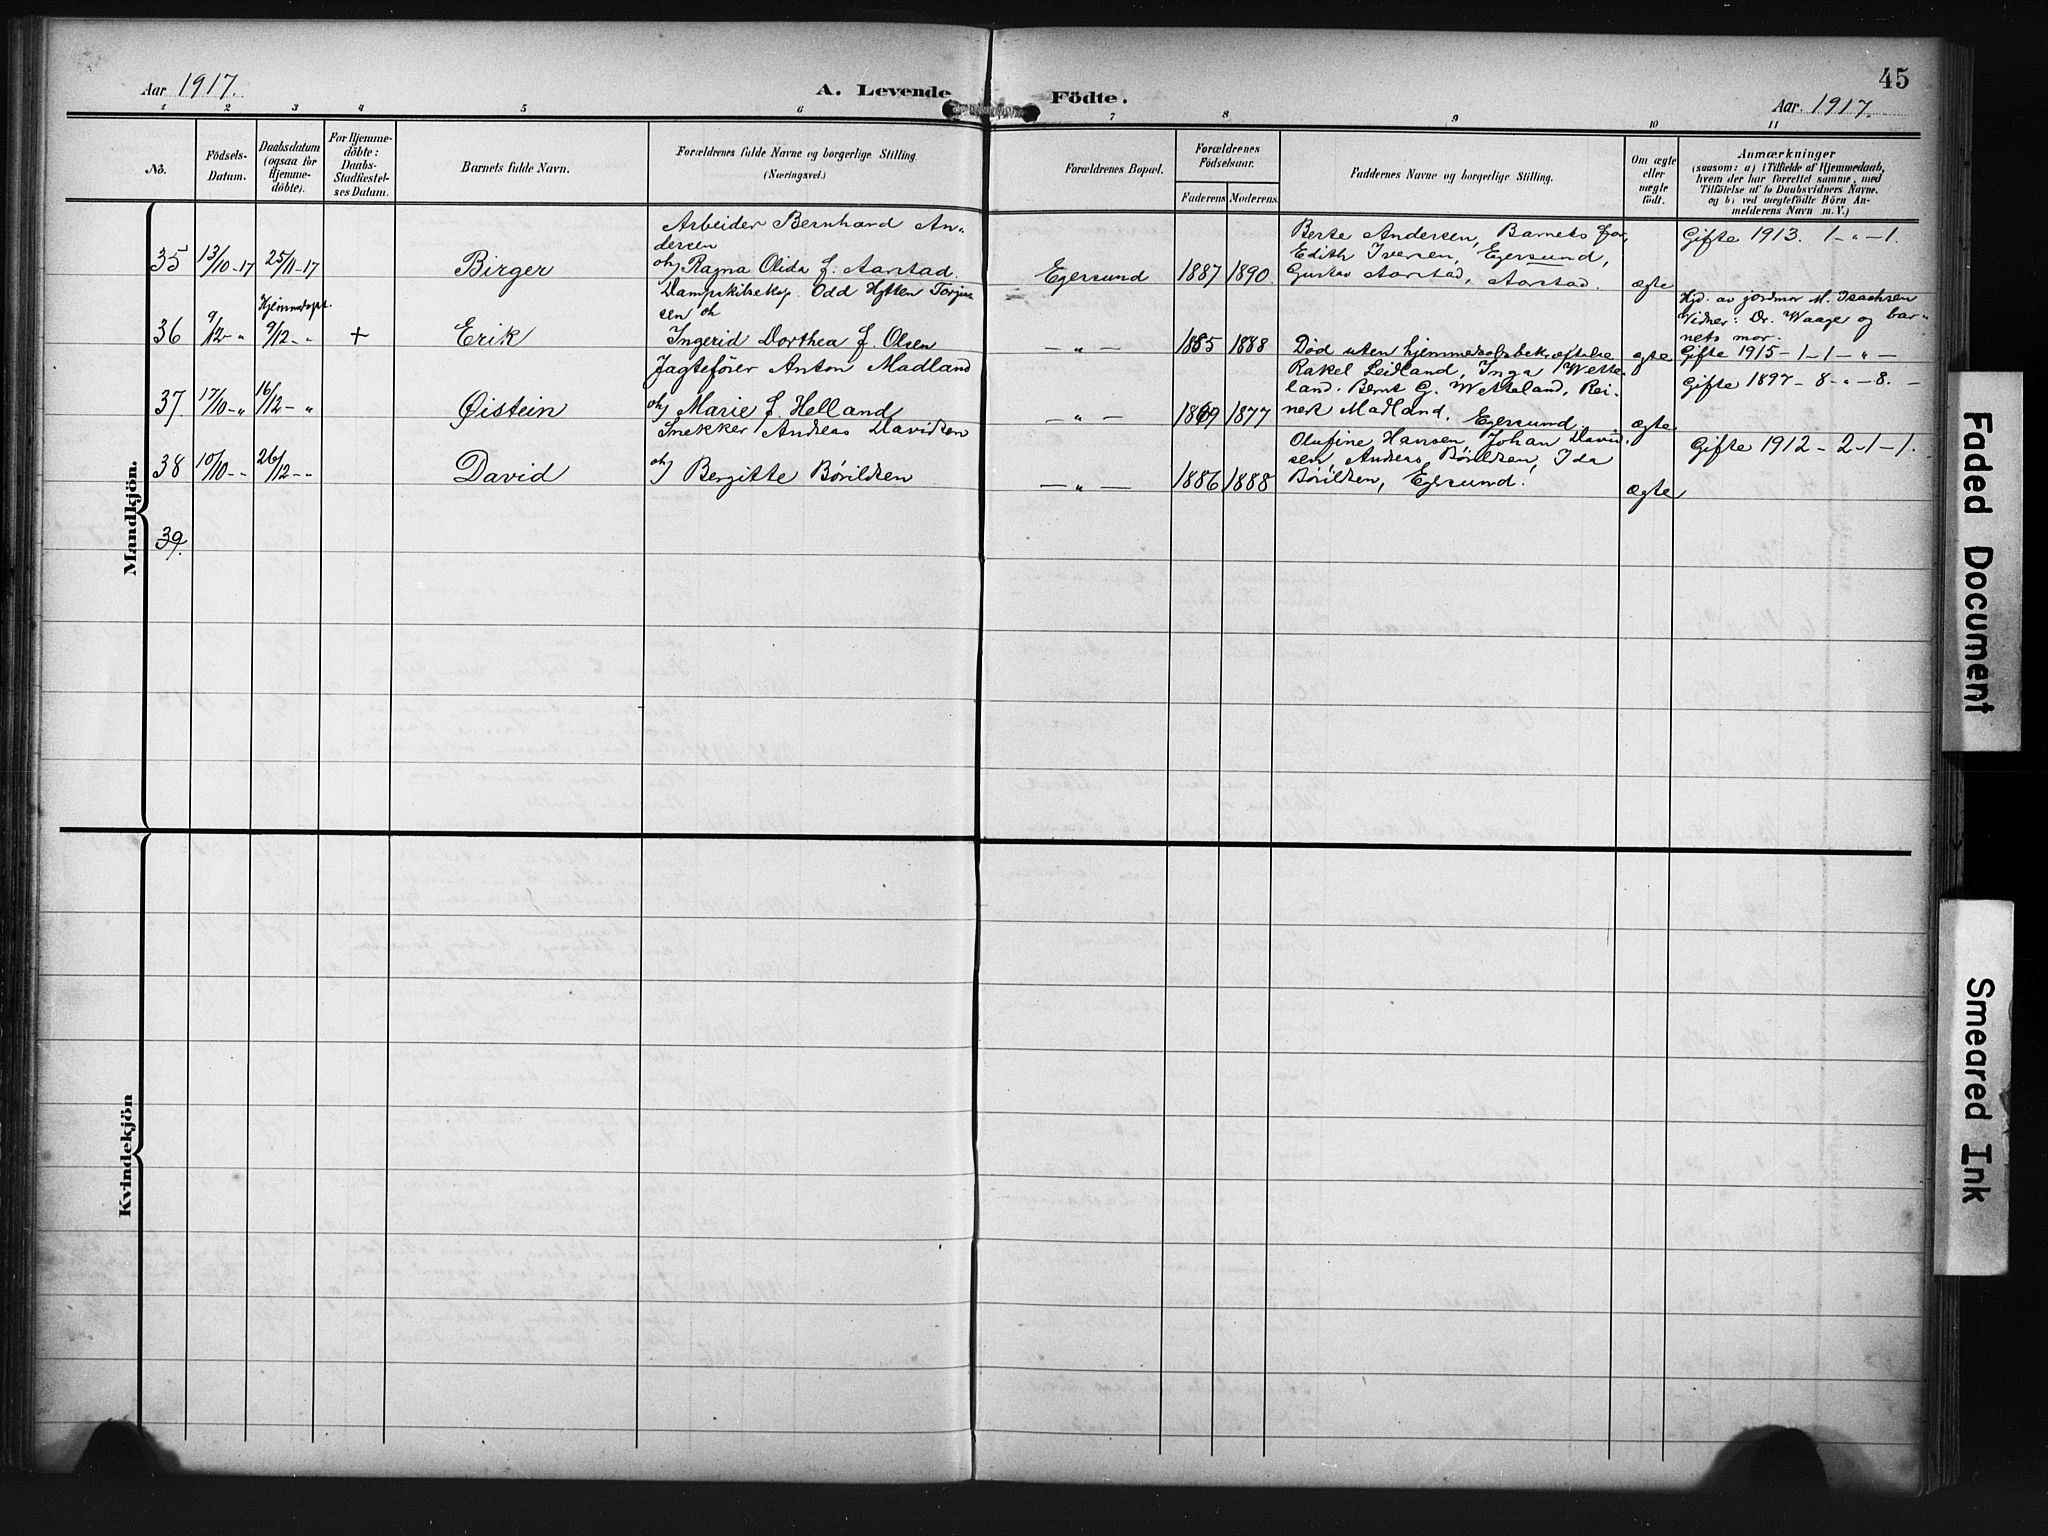 45
Aar 1917.
A. Levende Födte.
Aar. 1917.
1 2 3 4 5 6 7 8 9 10 11
No.
Födsels-
Datum.
Daabsdatum
(ogsaa for
Hjemme-
döbte).
For Hjemme-
döbte:
Daabs-
Stadfæstel-
ses Datum.
Barnets fulde Navn.
Forældrenes fulde Navne og borgerlige Stilling.
(Næringsvei.)
Forældrenes Bopæl.
Forældrenes
Födselsaar.
Faderens Moderens
Faddernes Navne og borgerlige Stilling.
Om ægte
eller
uægte
födt.
Anmærkninger
(saasom: a) i Tilfælde af Hjemmedaab,
hvem der har forrettet samme, med
Tilföielse af to Daabsvidners Navne,
og b) ved uægtefödte Börn An-
melderens Navn m. V.)
Mandkjön.
35 13/10-17 25/11-17 Birger
Arbeider Bernhard An-
dersen
oh Ragna Olida f. Aarstad.
Egersund 1887 1890.
Berte Andersen, Barnets far,
Edith Iversen, Egersund,
Gustav Aarstad, Aarstad.
ægte
Gifte 1913. 1-"-1.
36 9/12-" Hjemmedøpt 9/12-" + Erik
Dampskibseksp. Odd Hytten Torjus
sen oh
Ingerid Dorthea f. Olsen
-"- 1885 1888
Død uten hjemmedaabsbekræftelse
ægte
Hjd. av jordmor M. Isachsen
Vidner: Dr. Waage og bar-
nets mor.
Gifte 1915-1-1-"-
37. 17/10-" 16/12-" Øistein
Jagtefører Anton Madland
oh Marie f. Helland
-"- 1869 1877
Rakel Leidland, Inga Wette-
land. Bernt G. Wetteland, Rei-
nert Madland. Egersund
ægte
Gifte 1897-8-"-8.-
38 10/10-" 26/12-" David
Snekker Andreas Davidsen
oh Bergitte Børildsen
-"- 1886 1888
Olufine Hansen, Johan David
sen, Andreas Børildsen, Ida
Børildsen, Egersund.
ægte
Gifte 1912-2-1-1.
39.
Kvindekjön
Faded Document
Smeared Ink